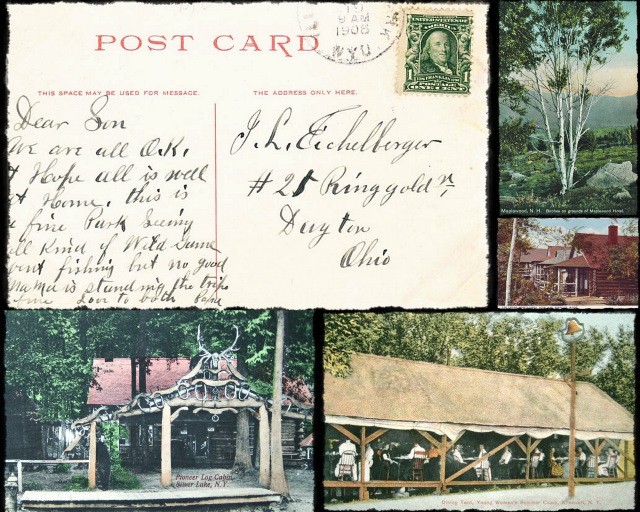 POST CARD
9 AM
1908
UNITED STATES OF AMERICA
FRANKLIN
ONE CENT
THIS SPACE MAY BE USED FOR MESSAGE.
THE ADDRESS ONLY HERE.
Dear Son
We are all O.K.
& Hope all is well
at Home, this is
a fine Park Seeing
all Kind of Wild Game
went fishing but no good
Mama is standing the trip
fine Love to both Papa
J. L. Eichelberger
# 25 Ringgold St,
Dayton
Ohio
Maplewood, N. H. Birches on grounds of Maplewood Hotel.
Pioneer Log Cabin,
Silver Lake, N.Y.
Dining Tent, Young Women's Summer Camp, N. Y.